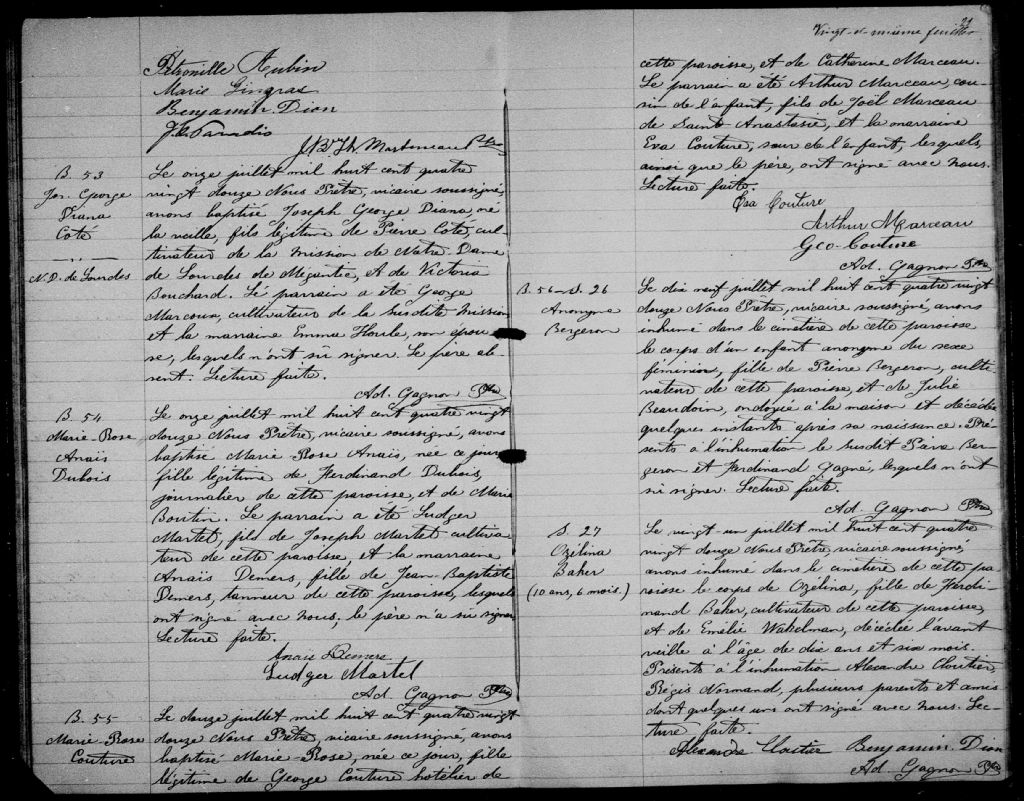 Pétronille Aubin
Marie Gingras
Benjamin Dion
J.E. Paradis
J.B.H. Marteneau Ptre
B. 53
Jos. George
Diana
Coté
N.D. de Lourdes
Le onze juillet mil huit cent quatre
vingt douze Nous Prêtre, vicaire soussigné,
avons baptisé Joseph George Diana, né
la veille, fils légitime de Pierre Coté, cul-
tivateur de la mission de Notre Dame
de Lourdes de Mégantic, et de Victoria
Bouchard. Le parrain a été George
Marcoux, cultivateur de la susdite mission
et la marraine Emma Houle, son épou-
se, lesquels n'ont su signer. Le père ab-
sent. Lecture faite.
Ad. Gagnon Ptre
B. 54
Marie-Rose
Anaïs
Dubois
Le onze juillet mil huit cent quatre vingt
douze Nous Prêtre, vicaire soussigné, avons
baptisé Marie Rose Anaïs, née ce jour,
fille légitime de Ferdinand Dubois,
journalier de cette paroisse, et de Marie
Boutin. Le parrain a été Ludger
Martel, fils de Joseph Martel cultiva-
teur de cette paroisse, et la marraine
Anaïs Demers, fille de Jean-Baptiste
Demers, tanneur de cette paroisse, lesquels
ont signé avec nous; le père n'a su signer
Lecture faite.
Anais Demers
Ludger Martel
Ad. Gagnon Ptre
B. 55
Marie-Rose
Couture
Le douze juillet mil huit cent quatre vingt
douze Nous Prêtre, vicaire soussigné, avons
baptisé Marie Rose, née ce jour, fille
légitime de George Couture hotélier de
21
Vingt-et-unième feuillet
cette paroisse, et de Catherine Marceau.
Le parrain a été Arthur Marceau, cou-
sin de l'enfant, fils de Joël Marceau
de Saint Anastasie, et la marraine
Eva Couture, sœur de l'enfant, lesquels,
ainsi que le père, ont signé avec nous.
Lecture faite.
Eva Couture
Arthur Marceau
Geo. Couture
Ad. Gagnon Ptre
B. 56 S. 26
Anonyme
Bergeron
Le dix neuf juillet mil huit cent quatre vingt
douze Nous Prêtre, vicaire soussigné, avons
inhumé dans le cimetière de cette paroisse
le corps d'un enfant anonyme du sexe
féminin, fille de Pierre Bergeron, culti-
vateur de cette paroisse, et de Julie
Beaudoin, ondoyée à la maison et décédée
quelques instants après sa naissance. Pré-
sents à l'inhumation le susdit Pierre Ber-
geron et Ferdinand Gagné, lesquels n'ont
su signer. Lecture faite.
Ad. Gagnon Ptre
S. 27
Ozélina
Baker
(10 ans, 6 mois.)
Le vingt un juillet mil huit cent quatre
vingt douze Nous Prêtre, vicaire soussigné,
avons inhumé dans le cimetière de cette pa-
roisse le corps de Ozélina, fille de Ferdi-
nand Baker, cultivateur de cette paroisse,
et de Emélie Wakelman, décédée l'avant
veille à l'âge de dix ans et six mois.
Présents à l'inhumation Alexandre Cloutier,
Régis Normand, plusieurs parents et amis
dont quelques uns ont signé avec nous. Lec-
ture faite.
Alexandre Cloutier Benjamin Dion
Ad. Gagnon Ptre